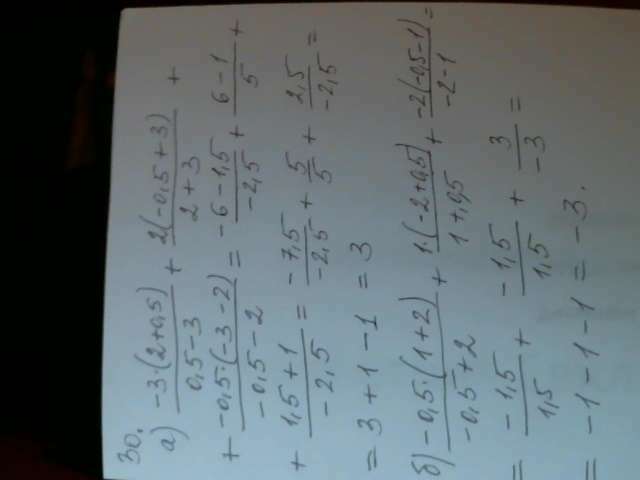 30.
а) -3·(2+0,5)/(0,5-3) + 2(-0,5+3)/(2+3) +
+ -0,5·(-3-2)/(-0,5-2) = (-6-1,5)/(-2,5) + (6-1)/5 +
+ (1,5+1)/(-2,5) = -7,5/-2,5 + 5/5 + 2,5/-2,5 =
= 3+1-1 = 3
б) -0,5·(1+2)/(-0,5+2) + 1·(-2+0,5)/(1+0,5) + -2(-0,5-1)/(-2-1) =
= -1,5/1,5 + -1,5/1,5 + 3/-3 =
= -1-1-1 = -3.